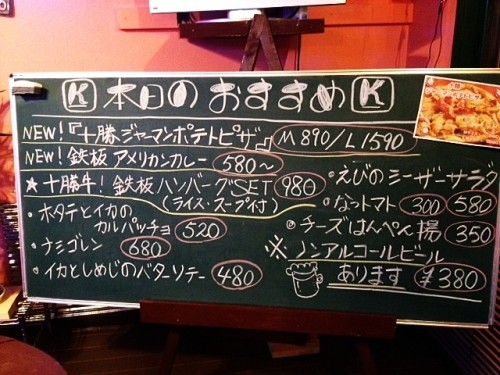 K 本日のおすすめ K
NEW!『十勝ジャーマンポテトピザ』 M890/L1590
NEW! 鉄板 アメリカンカレー 580〜
★十勝牛! 鉄板 ハンバーグSET 980
(ライス・スープ付)
・ホタテとイカの
カルパッチョ 520
・ナミゴレン 680
・イカとしめじのバターソテー 480
・えびのシーザーサラダ 580
・なっトマト 300
・チーズはんぺん揚 350
※ノンアルコールビール
あります ¥380